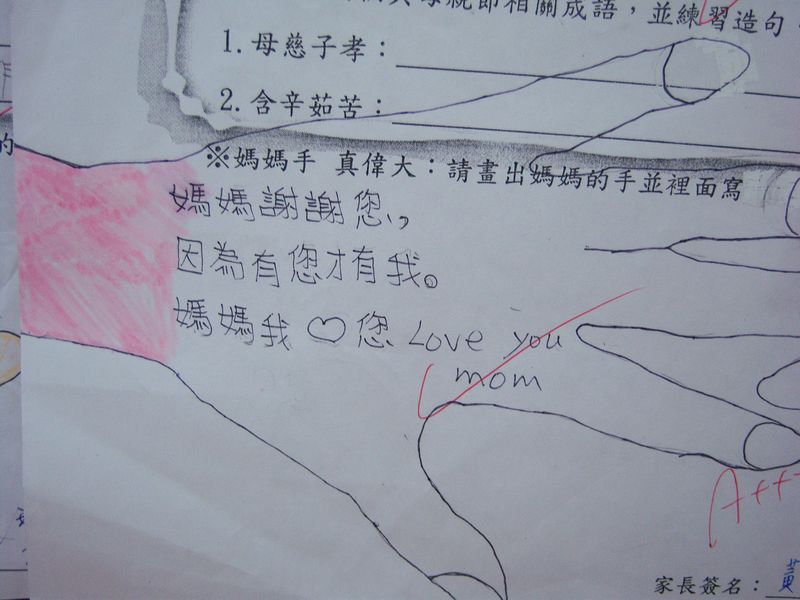 母親節相關成語，並練習造句
1. 母慈子孝：
2. 含辛茹苦：
※媽媽手 真偉大：請畫出媽媽的手並裡面寫
媽媽謝謝您，
因為有您才有我。
媽媽我♡您 Love you
mom
A++
家長簽名：黃